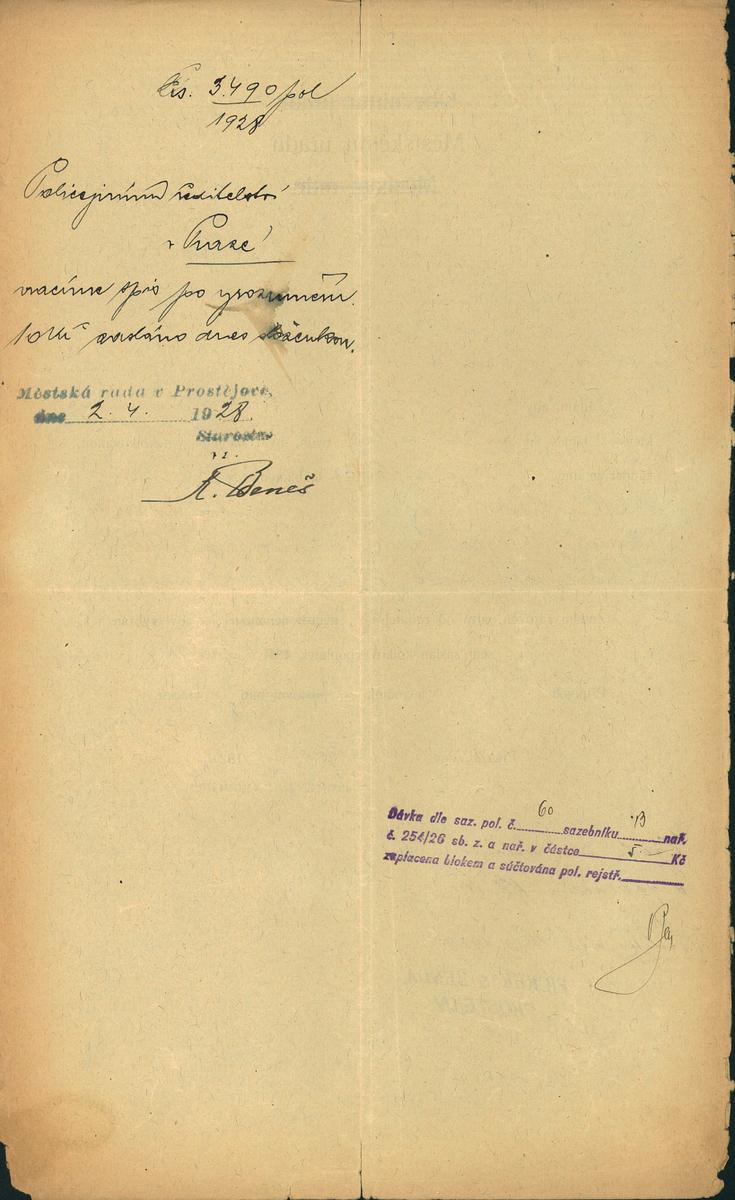 Čís. 3490 pol
1928
Policejnímu ředitelství
v Praze
vracíme spis po vyrozumění.
10 Kč zasláno dnes složenkou.
Městská rada v Prostějově,
dne 2. 4. 1928.
Starosta
A. Beneš
Dávka dle saz. pol. č. 60 sazebníku B nař.
č. 254/26 sb. z. a nař. v částce 5.- Kč
zaplacena blokem a súčtována pol. rejstř.